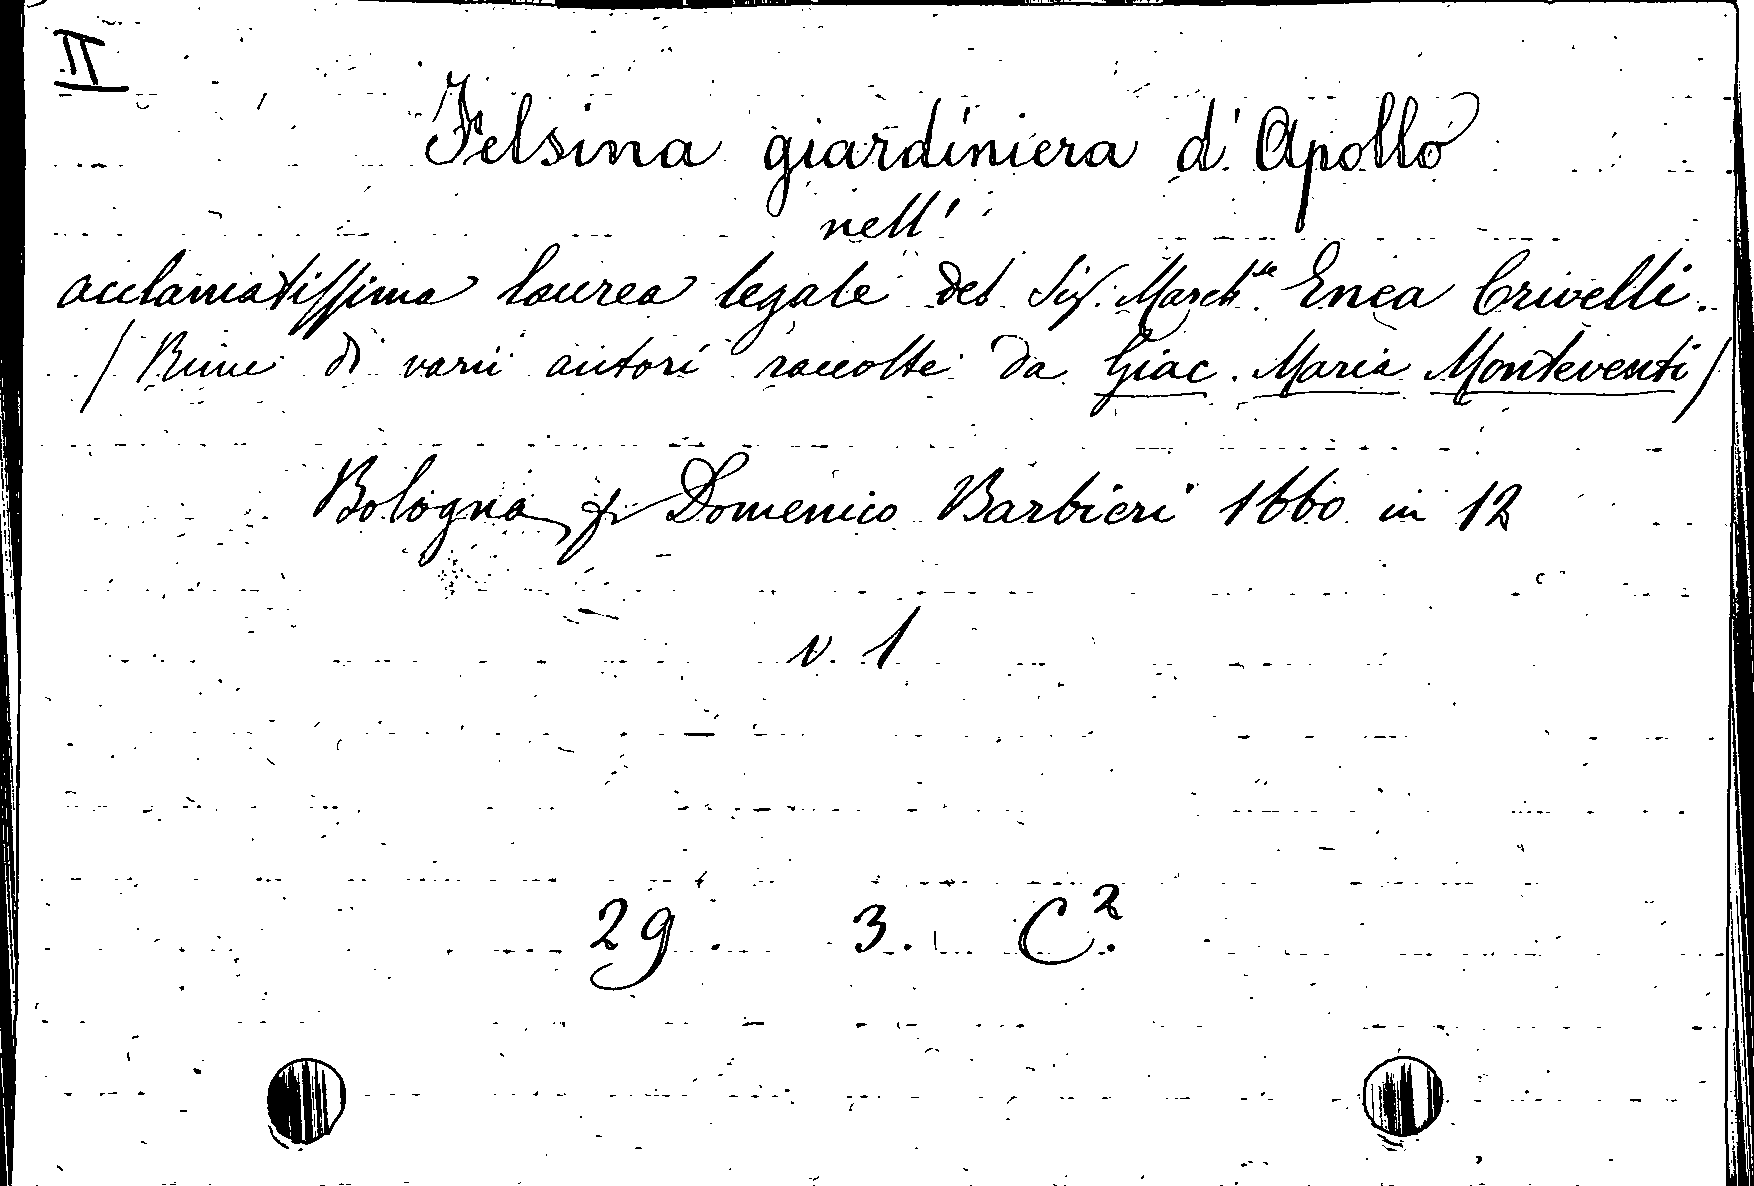 II
Felsina giardiniera d'Apollo
nell'
acclamatissima laurea legale del Sig. March.se Enea Crivelli.
(Rime di varii autori raccolte da Giac. Maria Monteventi)
Bologna, p. Domenico Barbieri 1660 in 12
v. 1
29. 3. C².